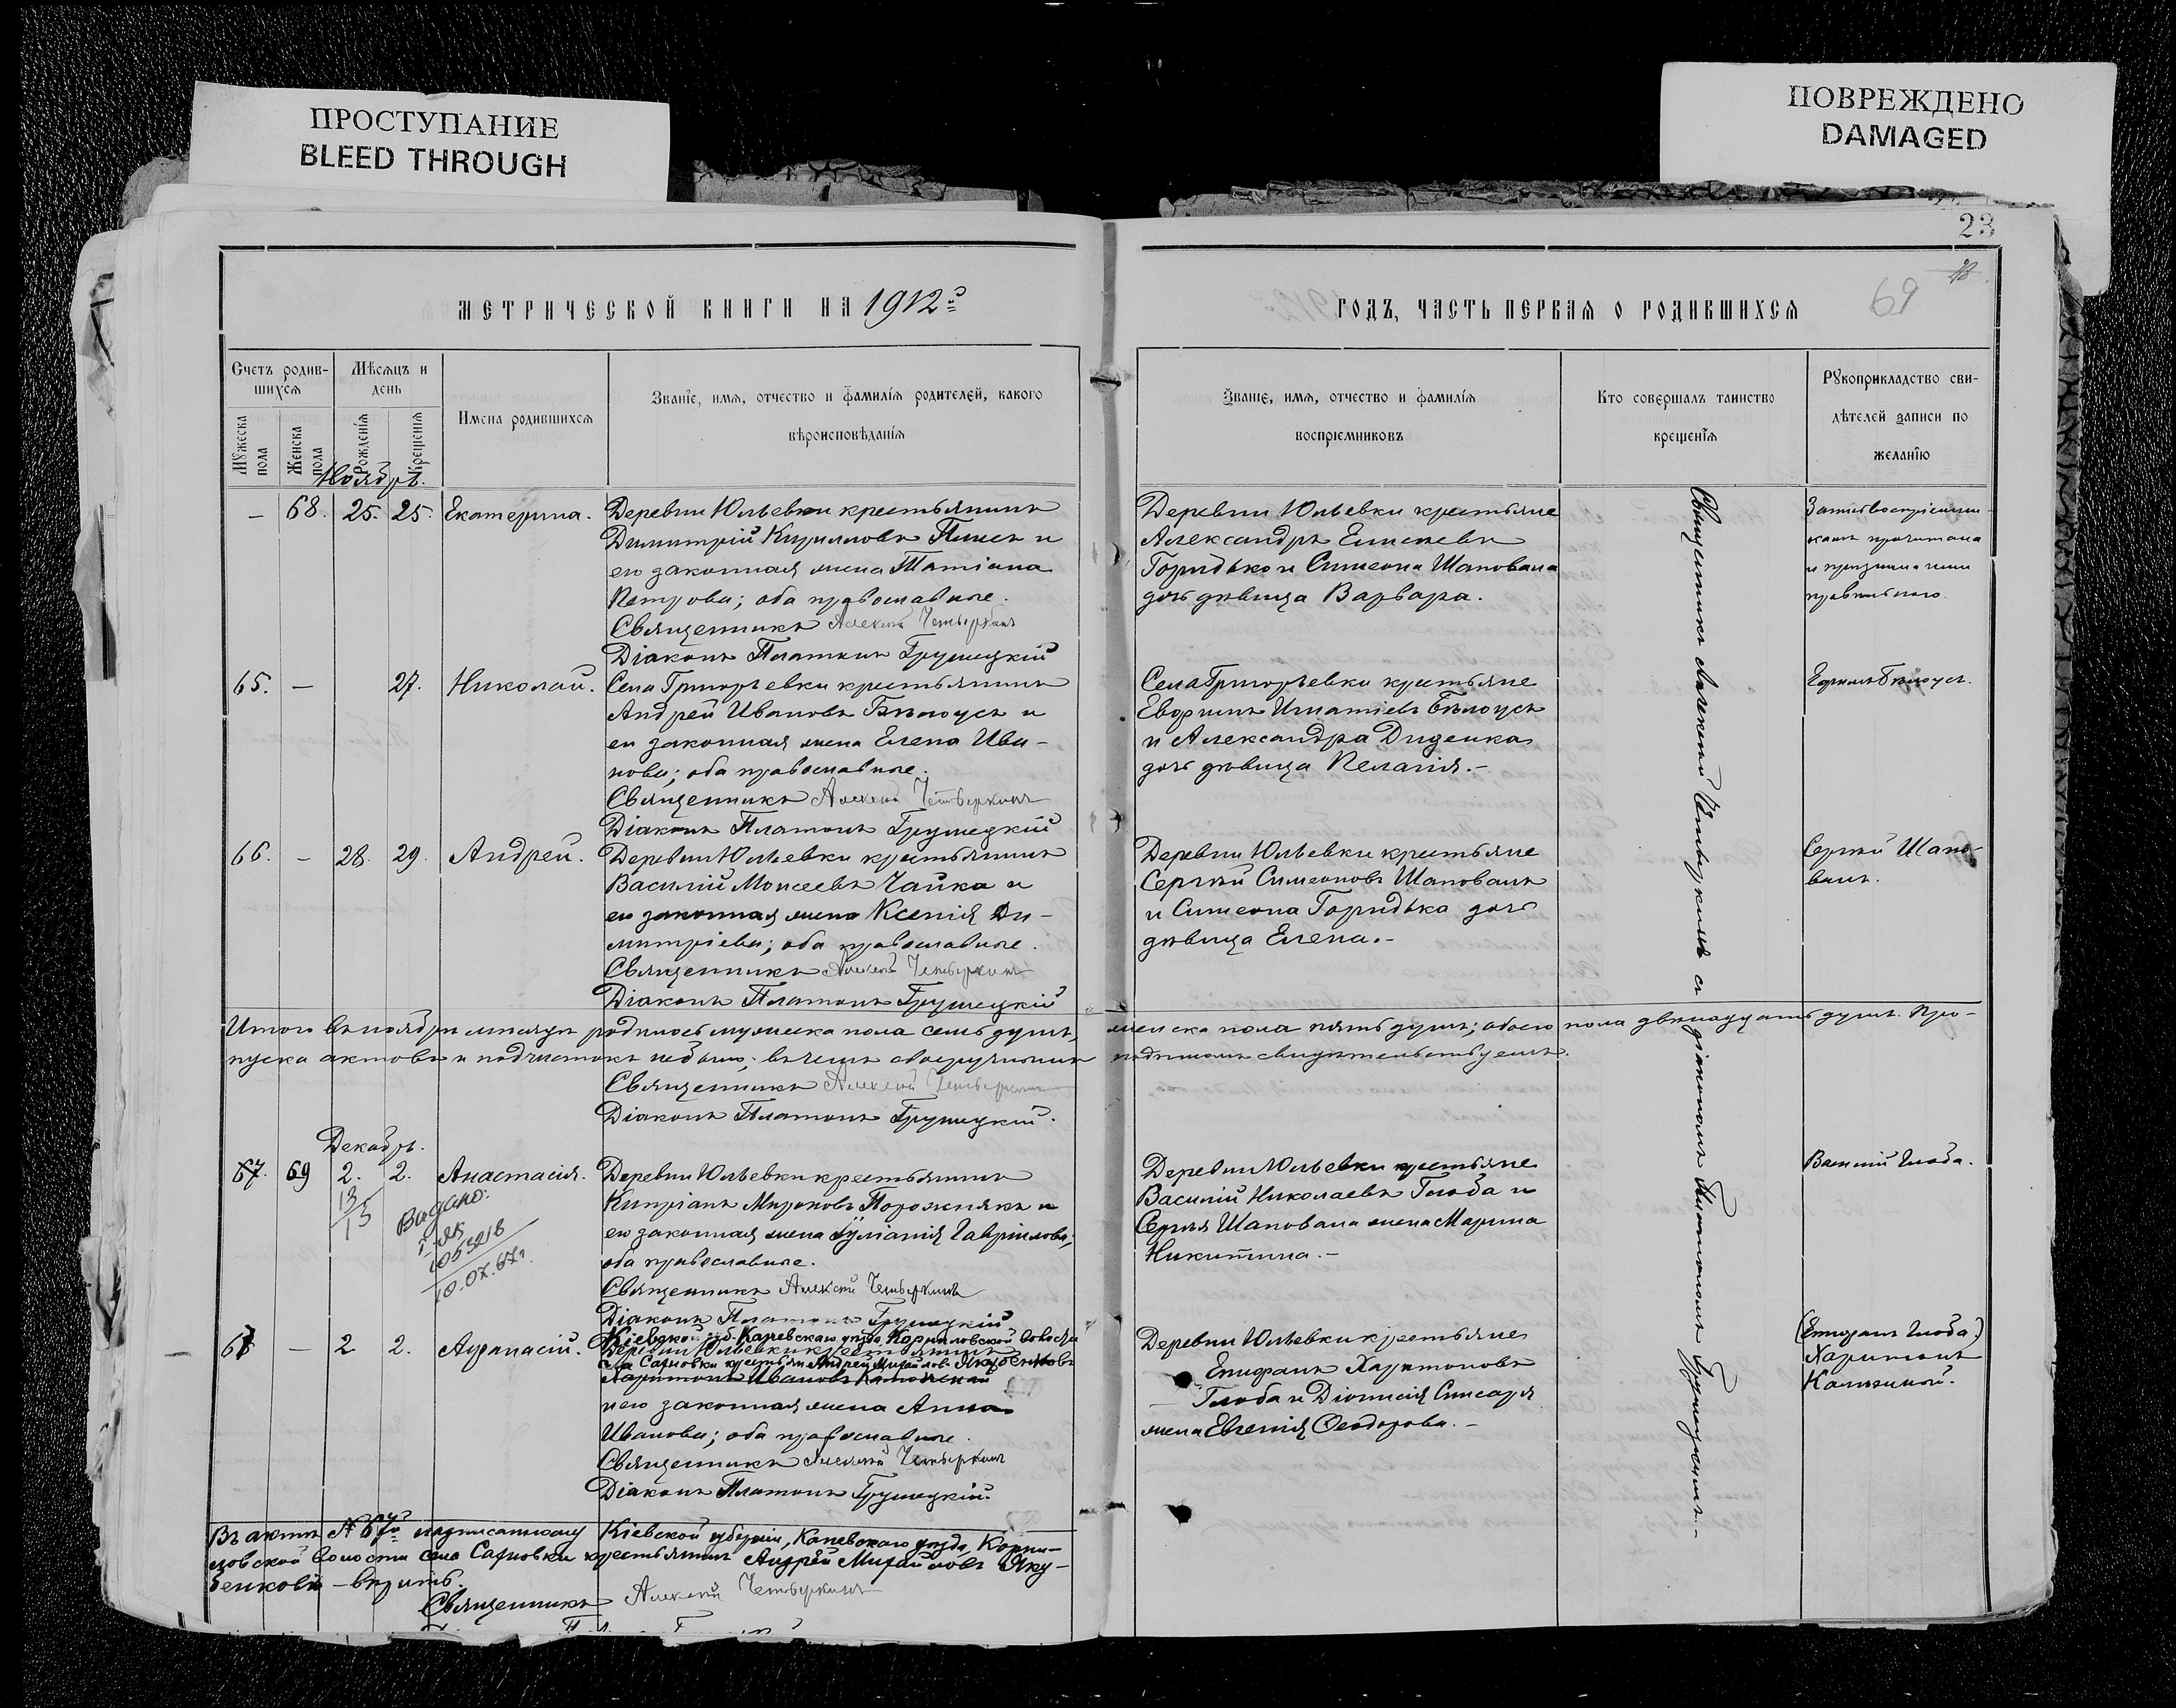 ПРОСТУПАНИЕ
BLEED THROUGH
ПОВРЕЖДЕНО
DAMAGED
23
69
МЕТРИЧЕСКОЙ КНИГИ НА 1912й
ГОДЪ, ЧАСТЬ ПЕРВАЯ О РОДИВШИХСЯ
Счетъ родив-
шихся
Мужеска
пола
Женска
пола
Мѣсяцъ и
день
Рожденія
Крещенія
Имена родившихся
Званіе, имя, отчество и фамилія родителей, какого
вѣроисповѣданія
Званіе, имя, отчество и фамилія
воспріемниковъ
Кто совершалъ таинство
крещенія
Рукоприкладство сви-
дѣтелей записи по
желанію
Ноябрь.
– 68. 25. 25. Екатерина.
Деревни Юльевки крестьянинъ
Димитрій Кирилловъ и
его законная жена Татіана
Петрова; оба православные.
Священникъ Алексій Четверкинъ
Діаконъ Платонъ Грушецкій
Деревни Юльевки крестьяне
Александръ Елисеевъ
Горидько и Симеона Шаповала
дочь дѣвица Варвара.
Священникъ Алексій Четверкинъ съ діакономъ Платономъ Грушецкимъ.–
65. – 27. Николай.
Села Григорьевки крестьянинъ
Андрей Ивановъ Бѣлоусъ и
его законная жена Елена Ива-
нова; оба православные.
Священникъ Алексій Четверкинъ
Діаконъ Платонъ Грушецкій
Села Григорьевки крестьяне
Евфимъ Игнатіевъ Бѣлоусъ
и Александра Диденка
дочь дѣвица Пелагія.–
Ефимъ Бѣлоусъ.
66. – 28. 29. Андрей.
Деревни Юльевки крестьянинъ
Василій Моисеевъ Чайка и
его законная жена Ксенія Ди-
митріева; оба православные.
Священникъ Алексій Четверкинъ
Діаконъ Платонъ Грушецкій
Деревни Юльевки крестьяне
Сергѣй Симеоновъ Шаповалъ
и Симеона Горидька дочь
дѣвица Елена.–
Сергѣй Шапо-
валъ.
Итого въ ноябрѣ мѣсяцѣ родилось мужеска пола семь душъ, женска пола пять душъ; обоего пола двѣнадцать душъ. Про-
пуска актовъ и подчистокъ не было; въ чемъ своеручнымъ подписомъ свидѣтельствуемъ.
Священникъ Алексій Четверкинъ
Діаконъ Платонъ Грушецкій.
Декабрь.
67. 69 2. 2. Анастасія.
13
15
Видано:
10.07.67г.
Деревни Юльевки крестьянинъ
Кипріанъ Мироновъ Порожнякъ и
его законная жена Іуліанія Гавриилова;
оба православные.
Священникъ Алексій Четверкинъ
Діаконъ Платонъ Грушецкій
Деревни Юльевки крестьяне
Василій Николаевъ Глоба и
Сергѣя Шаповала жена Марина
Никитина.–
Василій Глоба.
67 – 2 2. Афанасій.
Кіевской губ. Каневскаго уѣзда Корниловской волости
Деревни Юльевки крестьянинъ
села Сарновки крестьян. Андрей Михайловъ Якубенковъ
Харитонъ Ивановъ
и его законная жена Анна
Иванова; оба православные.
Священникъ Алексій Четверкинъ
Діаконъ Платонъ Грушецкій.
Деревни Юльевки крестьяне
Епифанъ Харитоновъ
Глоба и Діонисія Слисаря
жена Евгенія Ѳеодорова.–
(Епифанъ Глоба.)
Харитонъ
Въ актѣ № 67й надписанному Кіевской губерніи, Каневскаго уѣзда, Корни-
ловской волости села Сарновки крестьянинъ Андрей Михайловъ Яку-
бенковъ – вѣрить.
Священникъ Алексій Четверкинъ